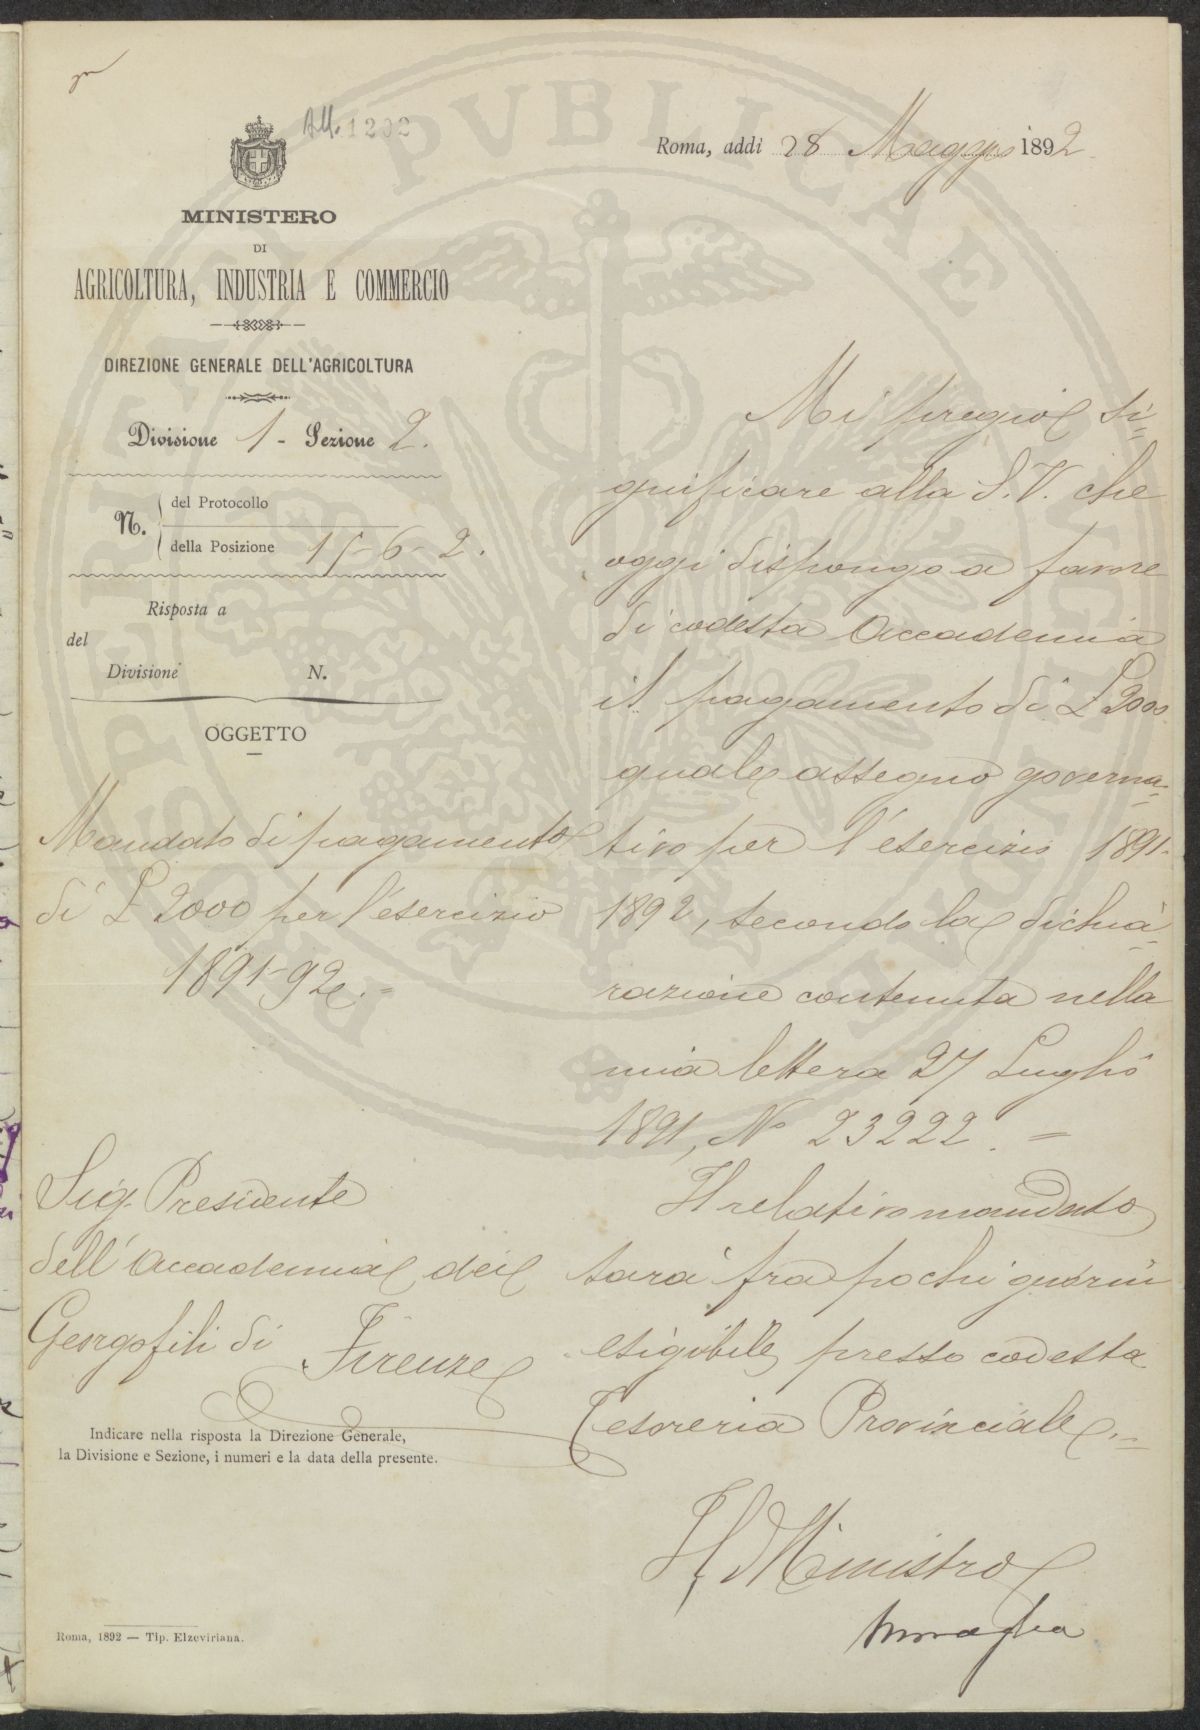 All. 1202
Roma, addì 28 Maggio 1892
MINISTERO
DI
AGRICOLTURA, INDUSTRIA E COMMERCIO
DIREZIONE GENERALE DELL'AGRICOLTURA
Divisione 1 - Sezione 2.
N.
del Protocollo
della Posizione 15-6-2.
Risposta a
del
Divisione N.
OGGETTO
Mandato di pagamento
di £ 2000 per l'esercizio
1891-92.=
Sig. Presidente
dell'Accademia dei
Georgofili di Firenze
Indicare nella risposta la Direzione Generale,
la Divisione e Sezione, i numeri e la data della presente.
Roma, 1892 — Tip. Elzeviriana.
Mi pregio si=
gnificare alla S.V. che
oggi dispongo a favore
di codesta Accademia
il pagamento di £ 2000
quale assegno governa=
tivo per l'esercizio 1891-
1892, secondo la dichia=
razione contenuta nella
mia lettera 27 Luglio
1891, N° 23222. =
Il relativo mandato
sarà fra pochi giorni
esigibile presso codesta
Tesoreria Provinciale.=
Il Ministro
Miraglia
SPERIMENTI PVBLICAE